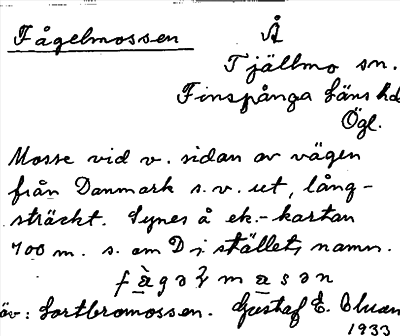 Fågelmossen Å
Tjällmo sn.
Finspånga läns hd
Ögl.
Mosse vid v. sidan av vägen
från Danmark s.v. ut, lång-
sträckt. Synes å ek.-kartan
700 m. s. om D i stället, namn.
öv: Sortbromossen. Gustaf E.
1933